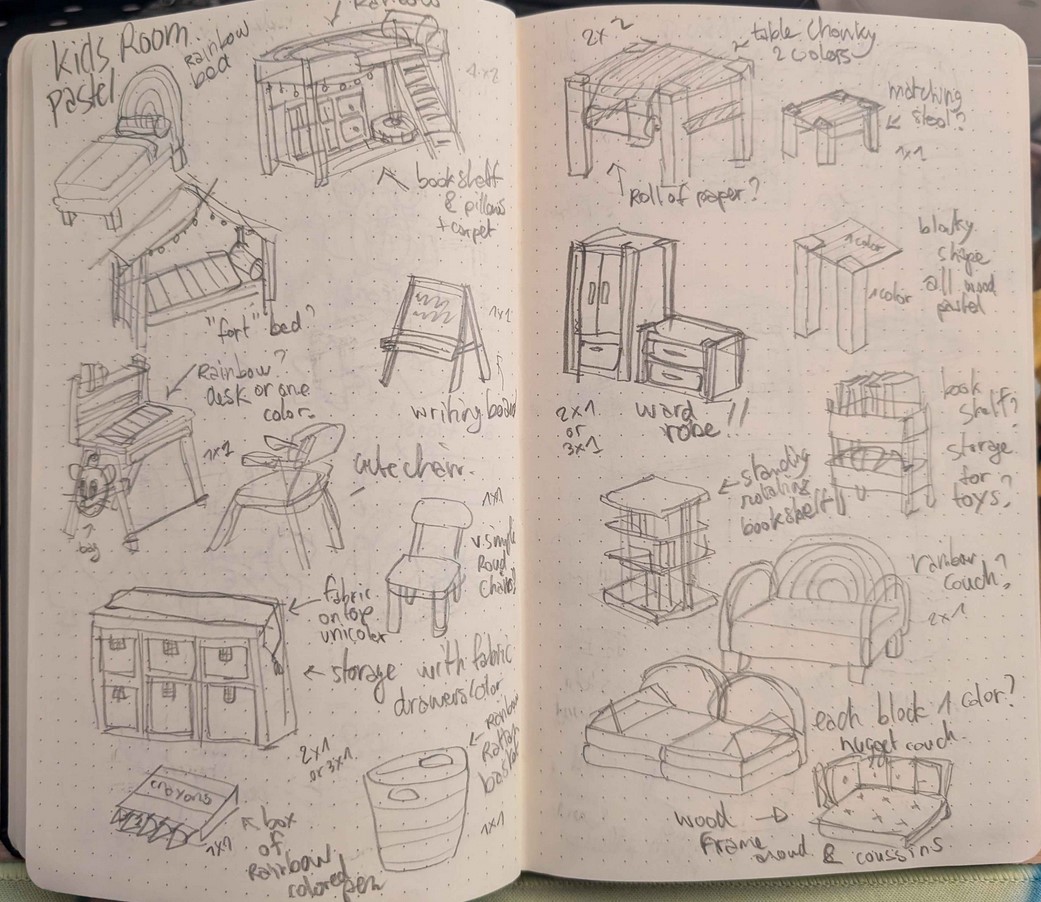 Kids Room
pastel
Rainbow
bed
Rainbow
4x2
bookshelf
& pillows
+ carpet
"fort" bed?
1x1
writing board
Rainbow?
desk or one
color.
1x2
bag
cute chair.
1x1
v. simple
Roud
chairs!
fabric
on top
unicolor
storage with fabric
drawers color
2x1
or 3x1
Rainbow
Rattan
basket
1x1
crayons
1x1
box
of
Rainbow
colored
pen
2x2
table chonky
2 colors
Roll of paper?
matching
stool?
1x1
1 color
1 color
blocky
shape
all wood
pastel
2x1
or
3x1
ward
robe!!
book
shelf?
storage
for
toys?
standing
rotating
bookshelf
rainbow
couch?
2x1
each block 1 color?
nugget couch.
wood
frame
aroud & coussins